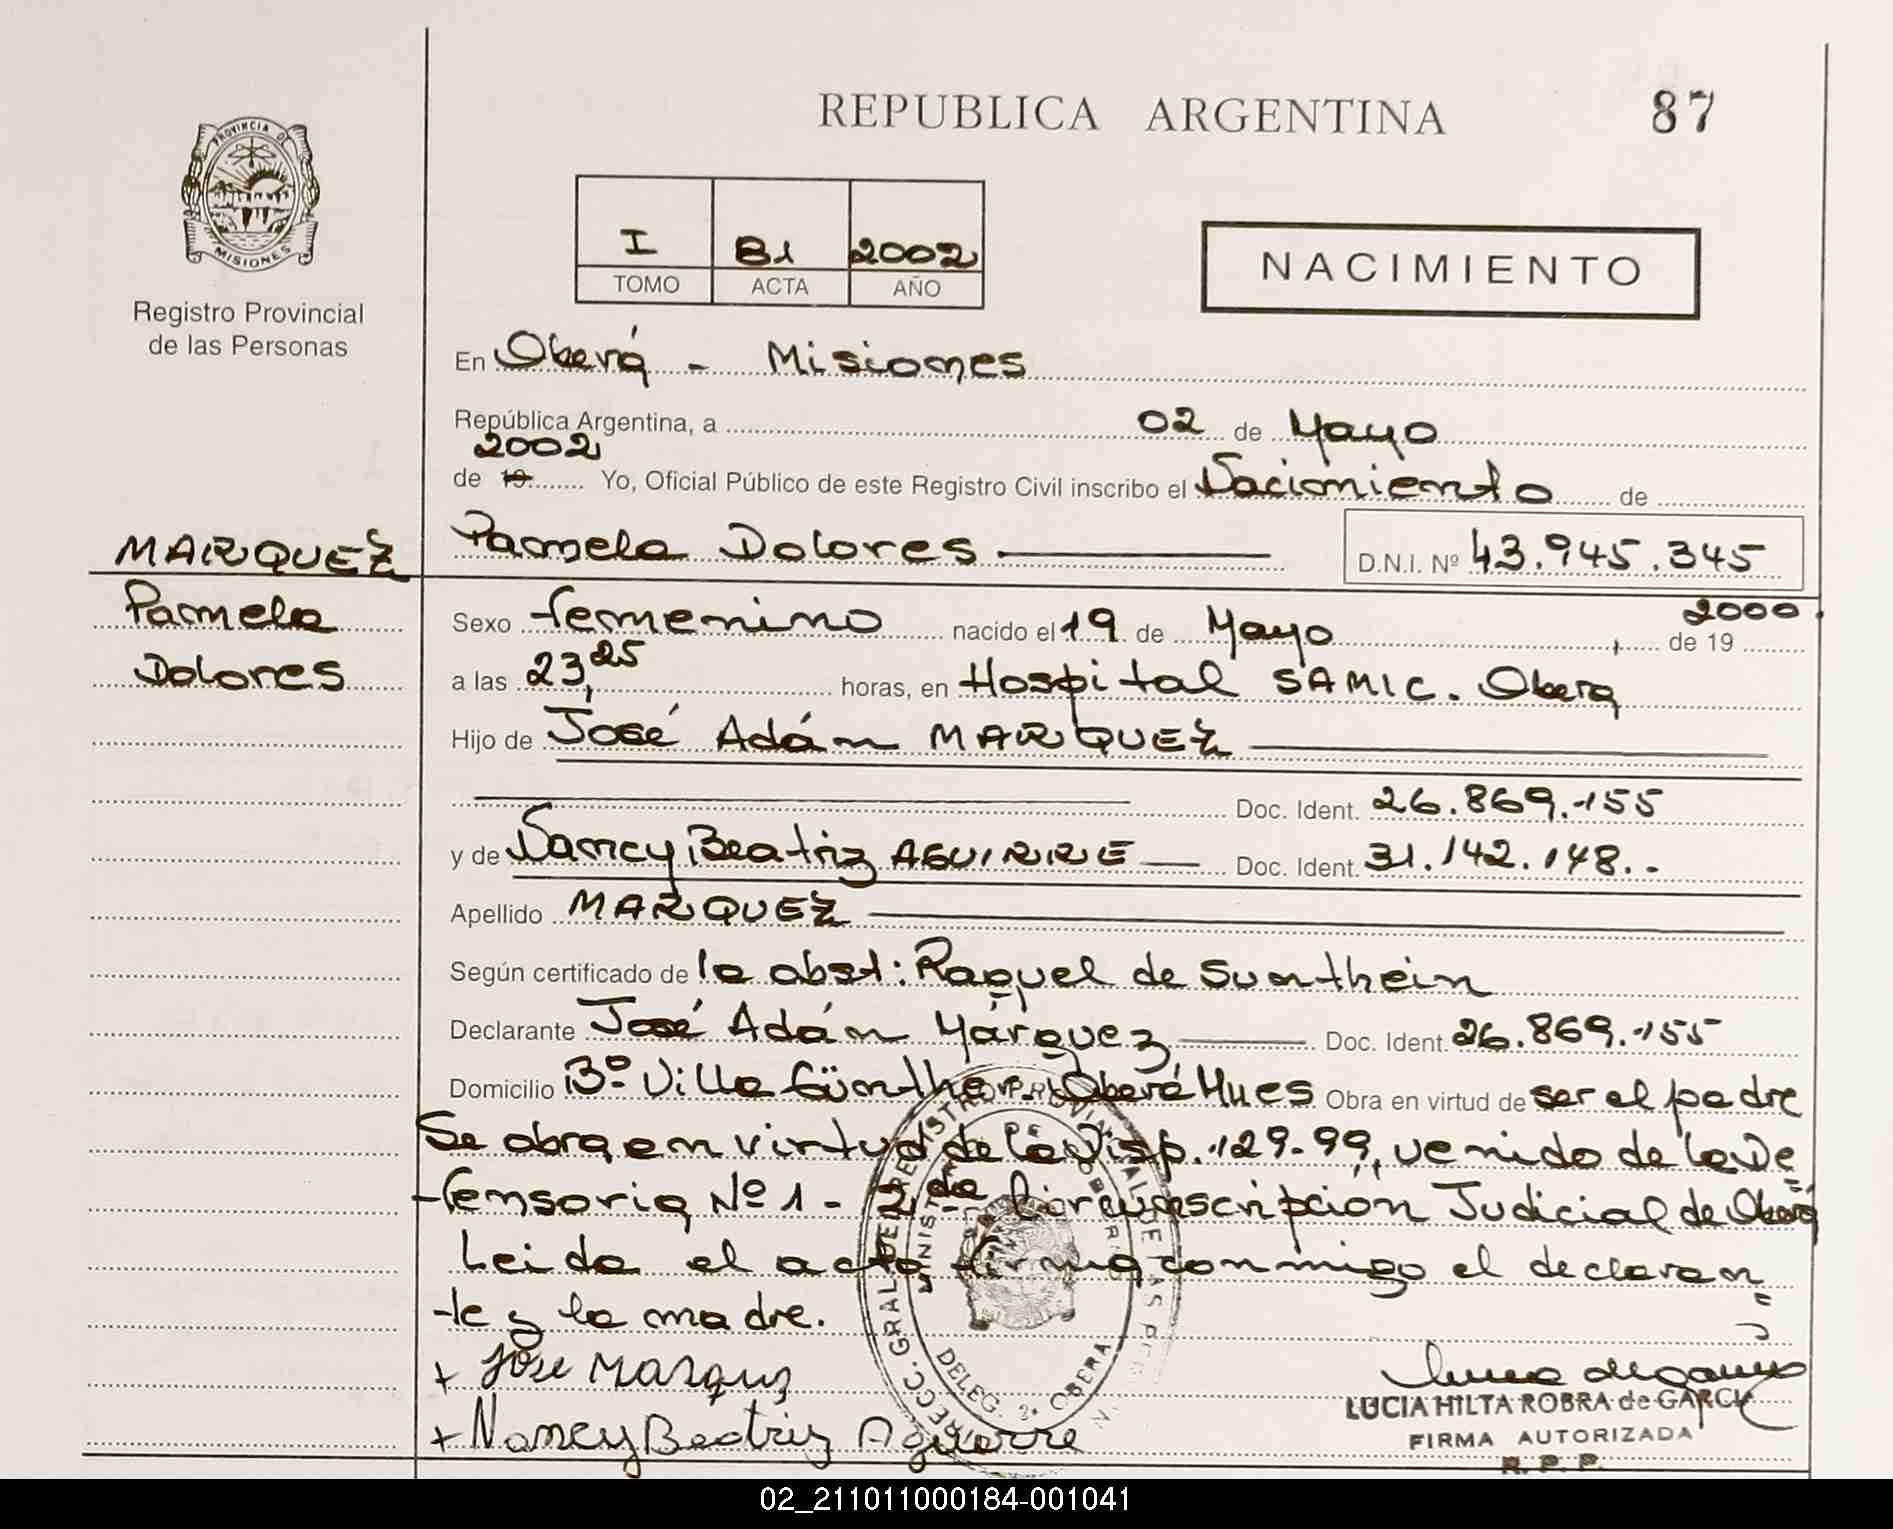 REPUBLICA ARGENTINA
87
PROVINCIA DE
MISIONES
Registro Provincial
de las Personas
I 81 2002
TOMO ACTA AÑO
NACIMIENTO
En Oberá - Misiones
República Argentina, a 02 de Mayo
2002
de 19 Yo, Oficial Público de este Registro Civil inscribo el Nacimiento de
MARQUEZ
Pamela Dolores D.N.I. Nº 43.945.345
Pamela
Dolores
Sexo femenino nacido el 19 de Mayo de 19 2000
a las 23,25 horas, en Hospital SAMIC. Oberá
Hijo de José Adán MARQUEZ
Doc. Ident. 26.869.155
y de Nancy Beatriz AGUIRRE Doc. Ident. 31.142.148.-
Apellido MARQUEZ
Según certificado de la obst: Raquel de Sunthein
Declarante José Adán Márquez Doc. Ident. 26.869.155
Domicilio Bº Villa Günther. Oberá Mnes Obra en virtud de ser el padre
Se obra en virtud de la Disp. 129-99, venido de la De
fensoria Nº 1 - 2da Circunscripción Judicial de Oberá
Leida el acta firma conmigo el declaran
te y la madre.
+ Jose Marquez
+ Nancy Beatriz Aguirre
DELEG. 2ª OBERA
LUCIA HILTA ROBRA de GARCIA
FIRMA AUTORIZADA
R. P. P.
02_211011000184-001041